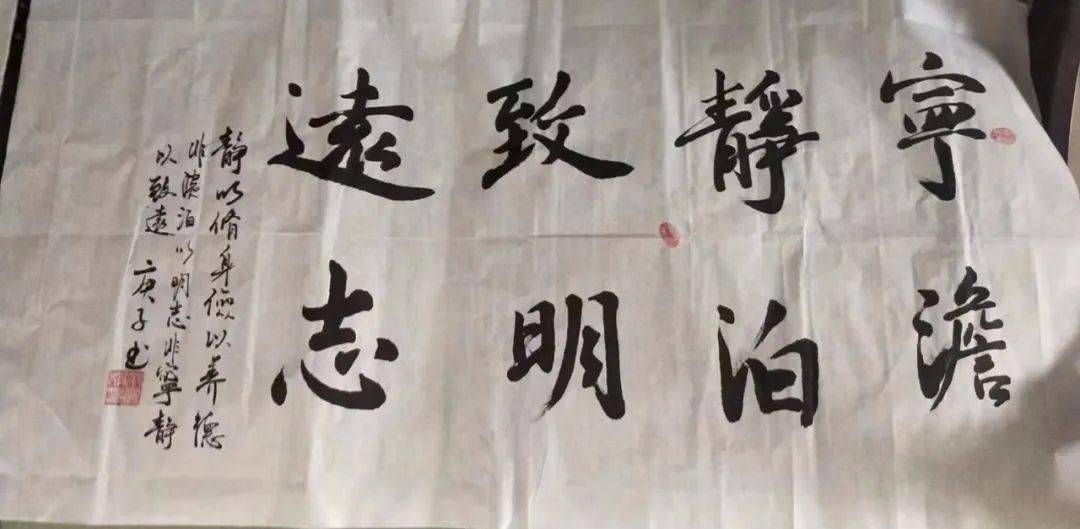 寧靜致遠
澹泊明志
静以脩身儉以养德
非淡泊以明志非寧静
以致遠 庚子书